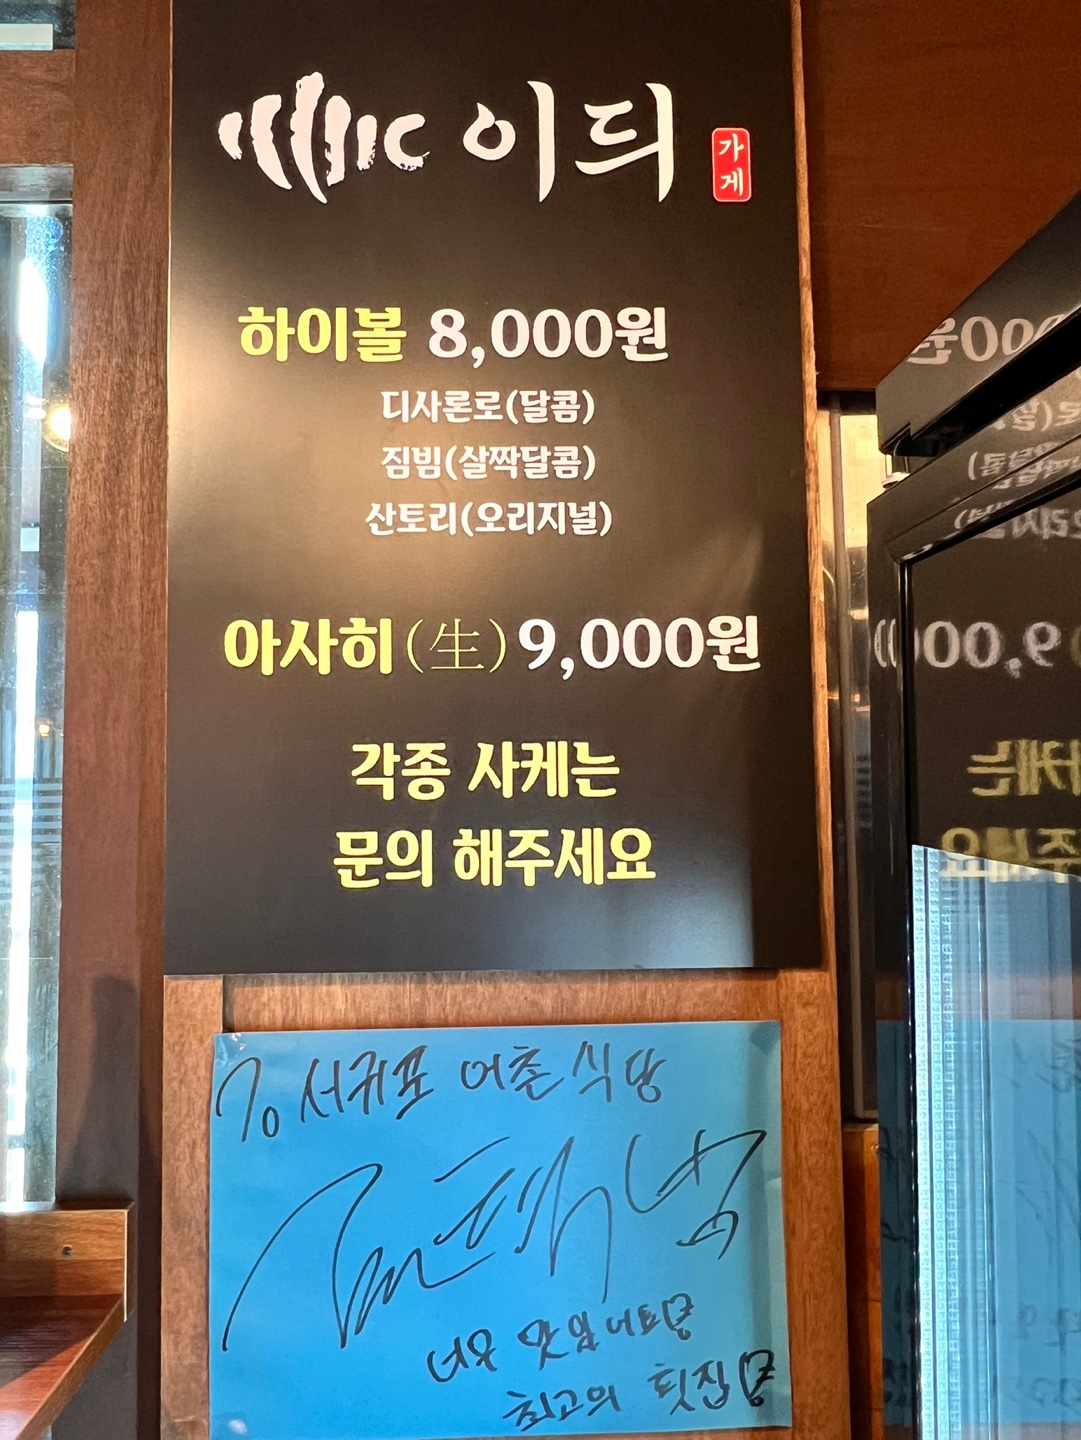 이듸
가게
하이볼 8,000원
디사론로(달콤)
짐빔(살짝달콤)
산토리(오리지널)
아사히(生)9,000원
각종 사케는
문의 해주세요
서귀포 어촌식당
너무 맛있어요
최고의 횟집